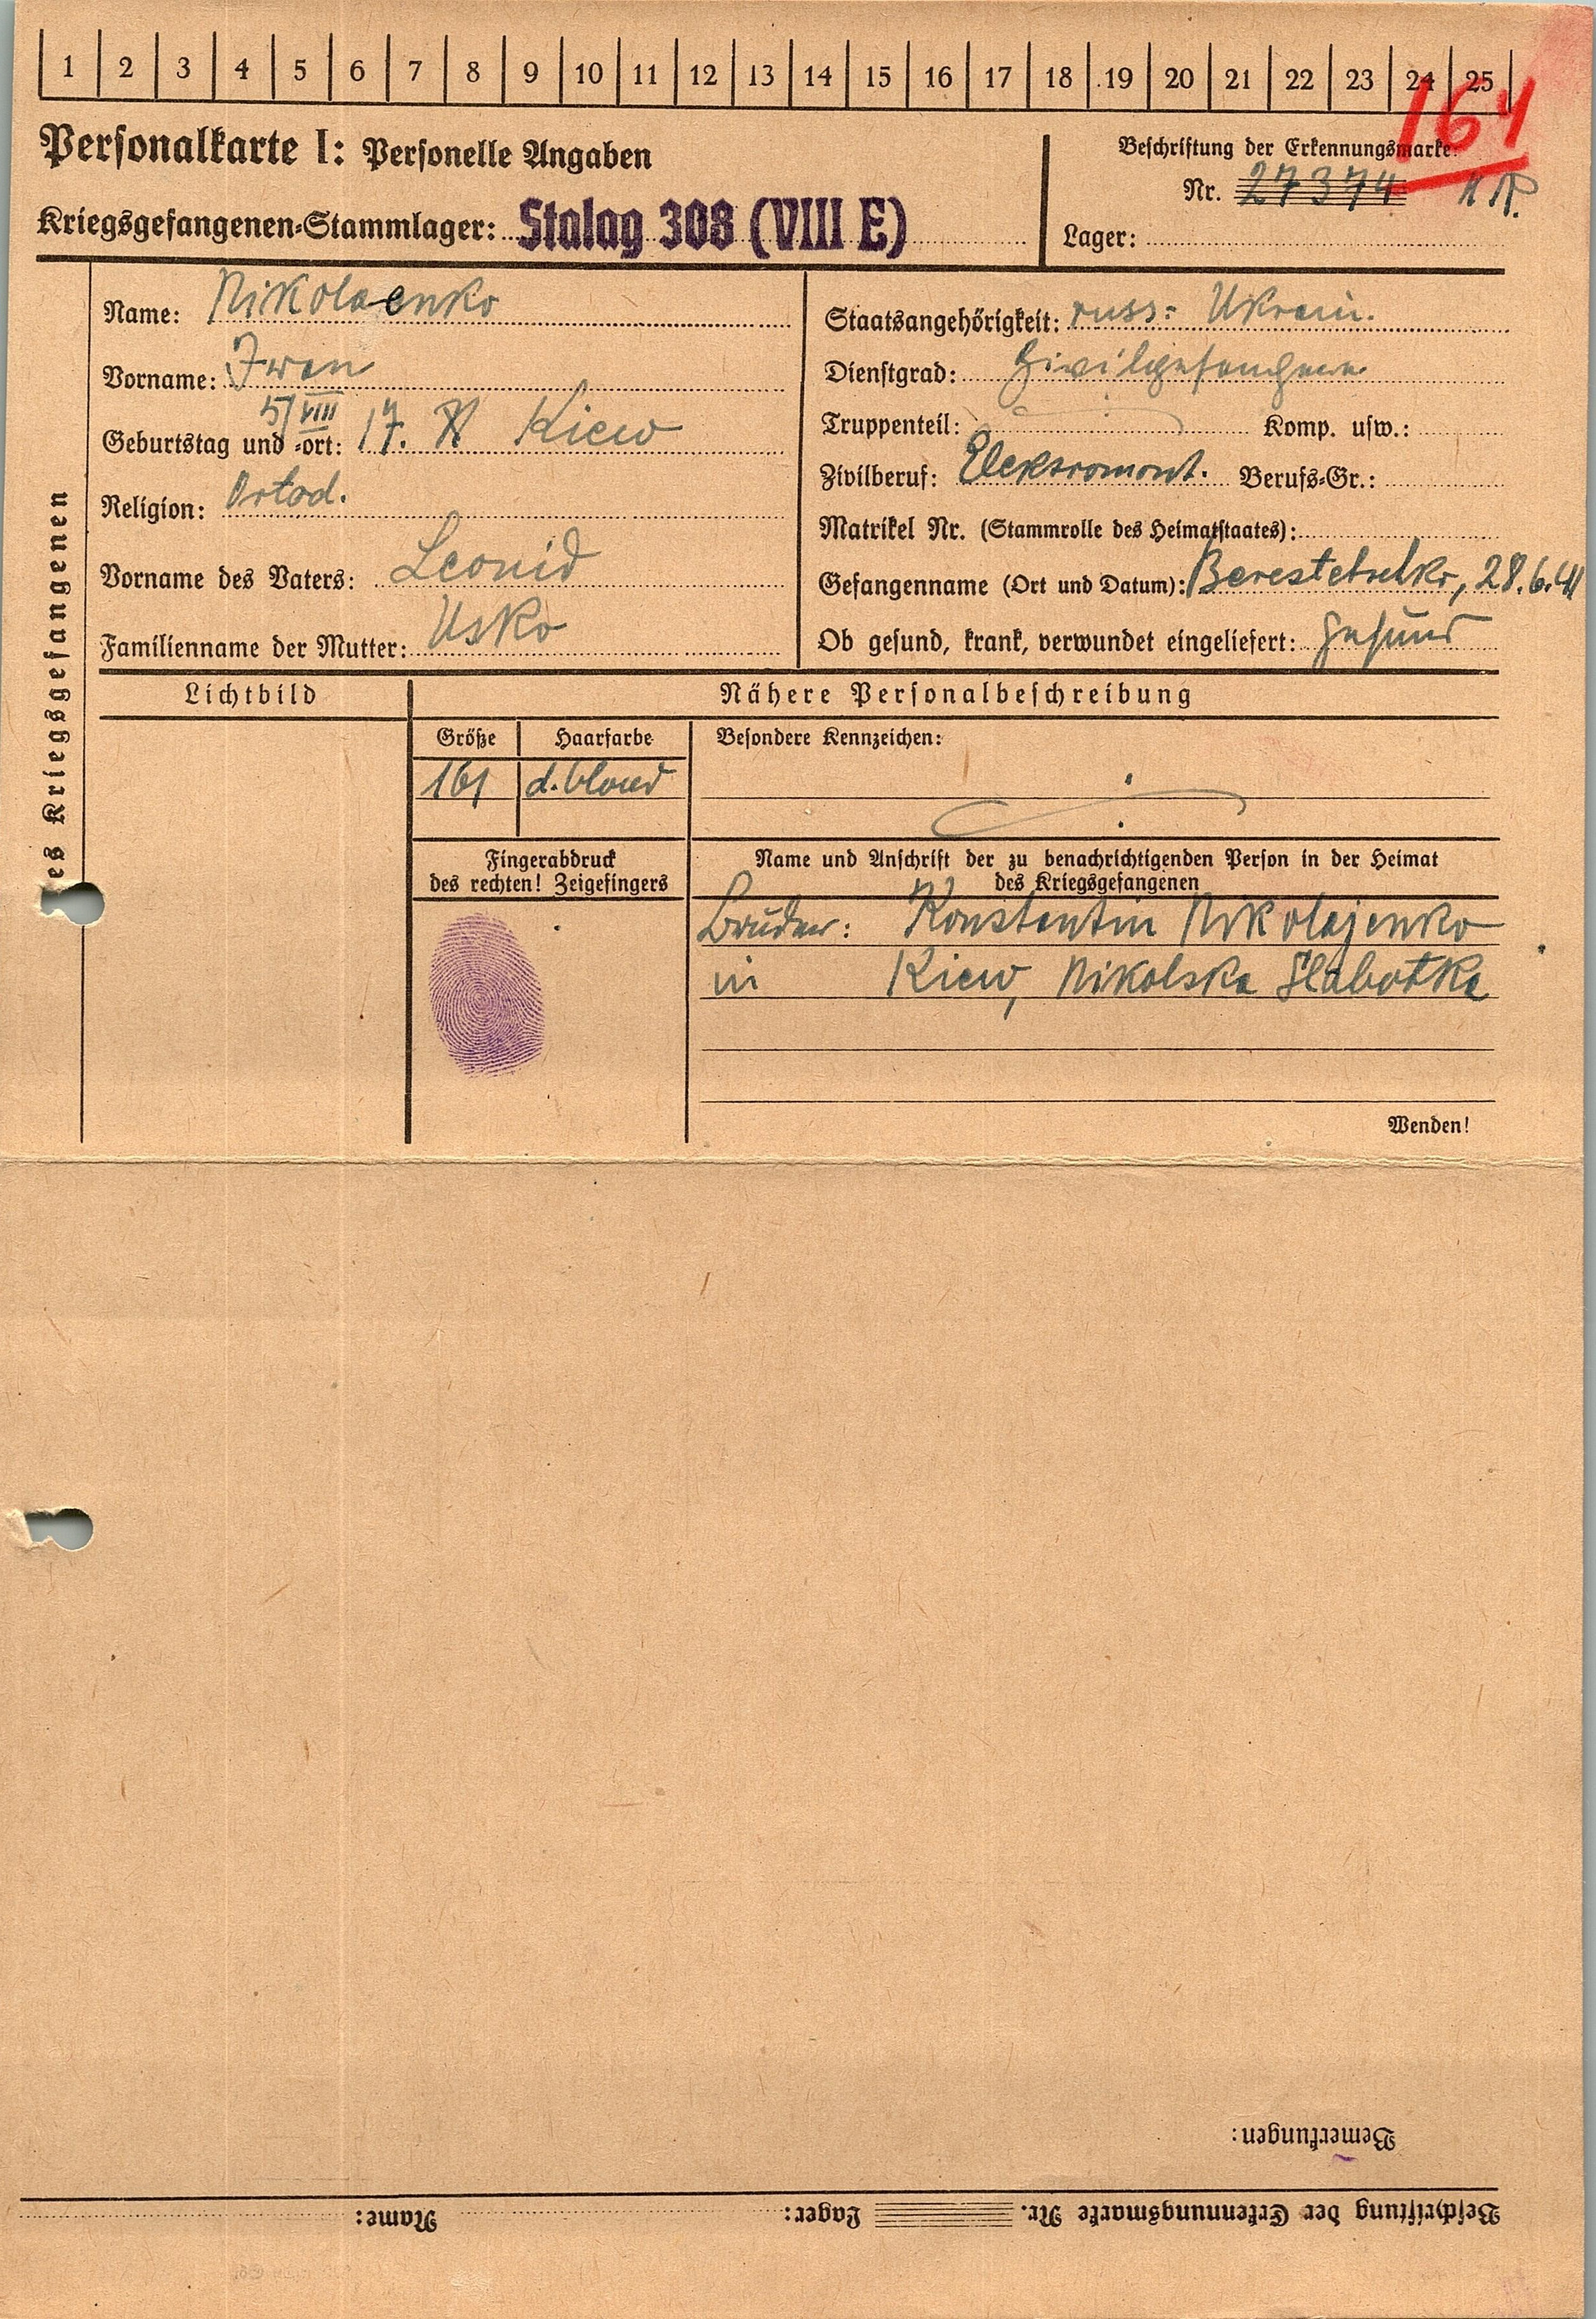 1 2 3 4 5 6 7 8 9 10 11 12 13 14 15 16 17 18 19 20 21 22 23 24 25
164
Personalkarte I: Personelle Angaben
Kriegsgefangenen-Stammlager: Stalag 308 (VIII E)
Beschriftung der Erkennungsmarke
Nr. 27374
Lager:
es Kriegsgefangenen
Name: Nikolaenko
Vorname: Iwan
5/VIII
Geburtstag und -ort: 17. Kiew
Religion: Ortod.
Vorname des Vaters: Leonid
Familienname der Mutter: Usko
Staatsangehörigkeit: russ: Ukrain.
Dienstgrad: Zivilgefangener
Truppenteil: Komp. usw.:
Zivilberuf: Elektromont. Berufs-Gr.:
Matrikel Nr. (Stammrolle des Heimatstaates):
Gefangenname (Ort und Datum): Berestetschko, 28.6.41
Ob gesund, krank, verwundet eingeliefert: gesund
Lichtbild
Nähere Personalbeschreibung
Größe Haarfarbe Besondere Kennzeichen:
161 d. blond
Fingerabdruck
des rechten! Zeigefingers
Name und Anschrift der zu benachrichtigenden Person in der Heimat
des Kriegsgefangenen
Bruder: Konstantin Nikolajenko
in Kiew, Nikolska Slabotka
Wenden!
Bemerkungen:
Beschriftung der Erkennungsmarke Nr. Lager: Name: